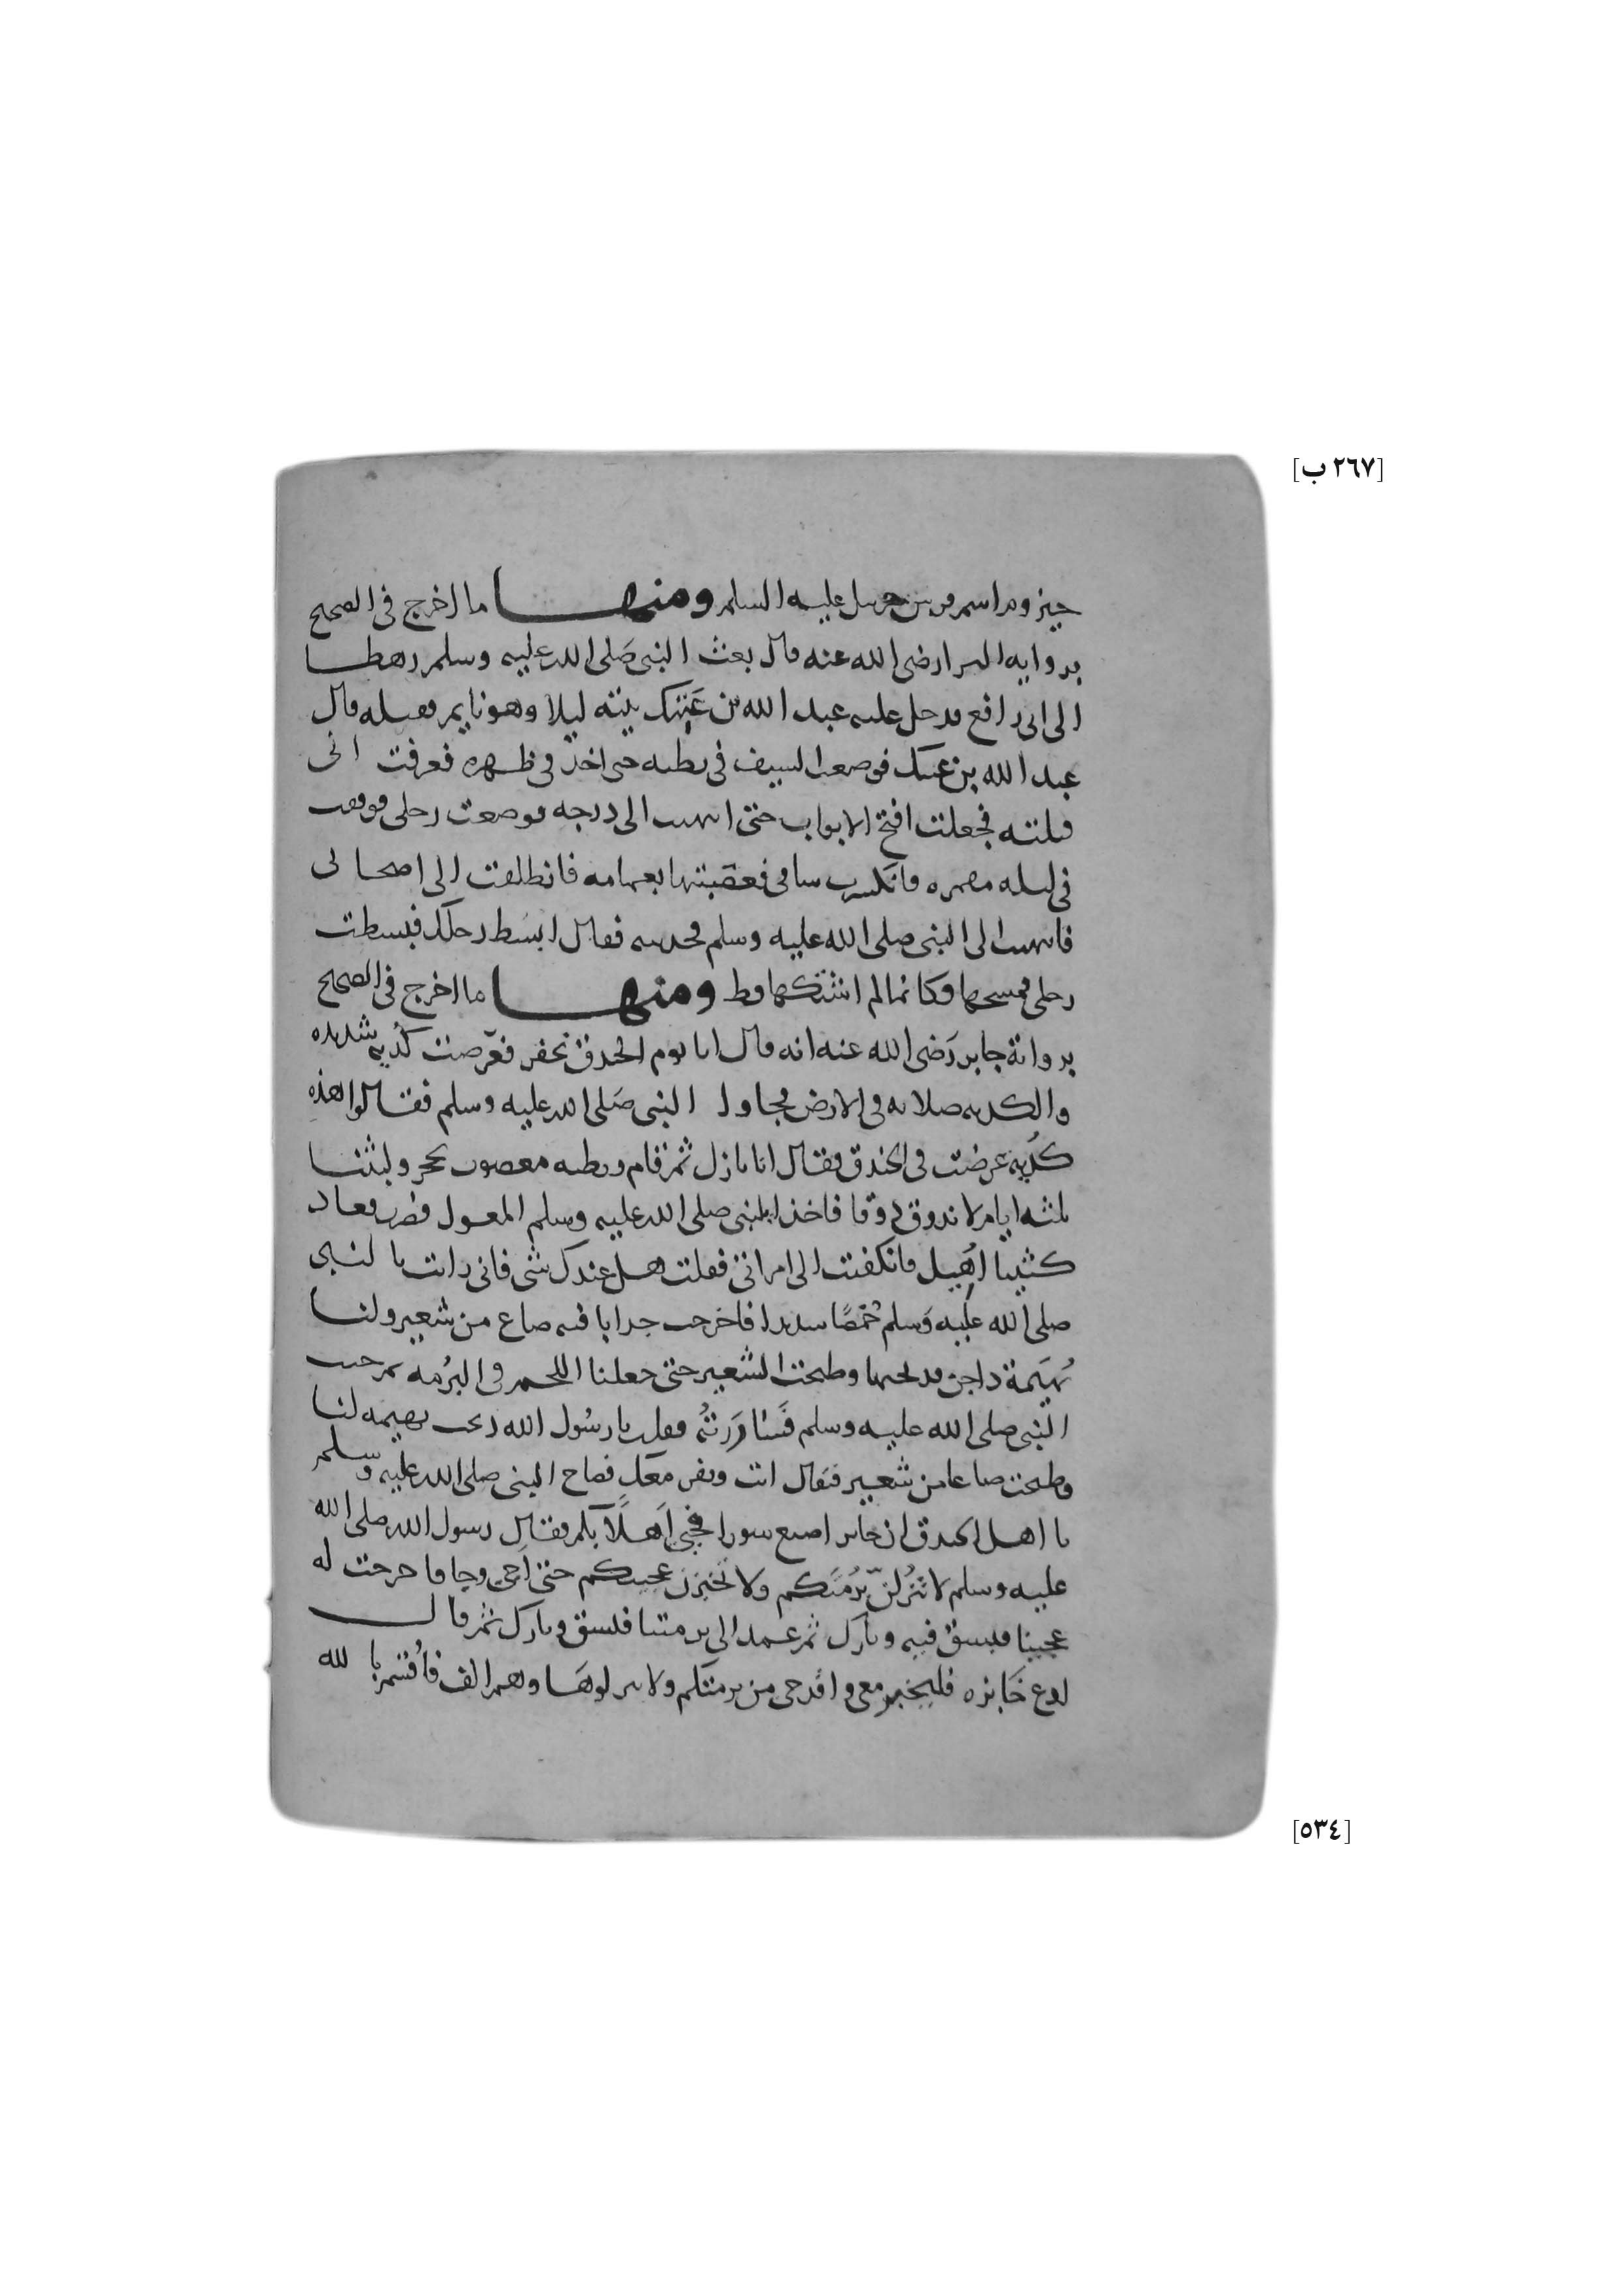 [٢٦٧ ب]
حيزوم اسم فرس جبريل عليه السلم ومنها ما اخرج في الصحيح
برواية البرا رضى الله عنه قال بعث النبى صَلى الله عليه وسلم رهطا
الى ابى رافع فدخل عليه عبد الله بن عَتِيك بيته ليلا وهو نايم فقتله قال
عبد الله بن عتيك فوضعت السيف فى بطنه حتى اخذ فى ظهره فعرفت انى
قتلته فجعلت افتح الابواب حتى انتهيت الى درجه فوضعت رجلى فوقعت
فى ليله مقمره فانكسرت ساقى فعصّبتها بعمامه فانطلقت الى اصحابى
فانتهيت الى النبى صلى الله عليه وسلم فحدثته فقال ابسُط رجلك فبسطت
رجلى فمسحها فكانما لم اشتكها قط ومنها ما اخرج فى الصحيح
برواية جابر رَضى الله عنه انه قال انا يوم الخندق نحفر فعرَضت كُديه شديده
والكديه صلابه فى الارض فجاوا النبى صَلى الله عليه وسلم فقالوا هذه
كُديه عرضت فى الخندق فقال انا نازل ثم قام وبطنه معصوب بحجر ولبثنا
ثلثه ايام لا نذوق ذوقا فاخذ النبى صلى الله عليه وسلم المعول فضرب فعاد
كثيبا اَهْيل فانكفئت الى امراتى فقلت هل عندك شى فانى رايت بالنبى
صلى الله عليه وَسلم خَمَصًا شديدا فاخرجت جرابا فيه صاع من شعير ولنا
بُهَيمة داجن فذبحتها وطحنت الشعير حتى جعلنا اللحم فى البُرمه ثم جيت
النبى صلى الله عليه وسلم فَسَارَرتُه فقلت يا رسُول الله ذبحت بهيمه لنا
وطحنت صاعا من شعير فتعال انت ونفر معك فصاح النبى صلى الله عليه وسلم
يا اهل الخندق ان جابرا صنع سورا فحيَّ اَهلًا بكم فقال رسول الله صلى الله
عليه وسلم لا تُنزلنّ بُرْمَتكم ولا تخبزن عجينكم حتى اَجى وجا فاخرجت له
عجينا فبسق فيه وبارك ثم عمد الى برمتنا فبسق وبارك ثم قال
ادع خَابزه فلتخبز معى واقدحى من برمتكم ولا تنزلوهَا وهم الف فاُقسم بالله
[٥٣٤]